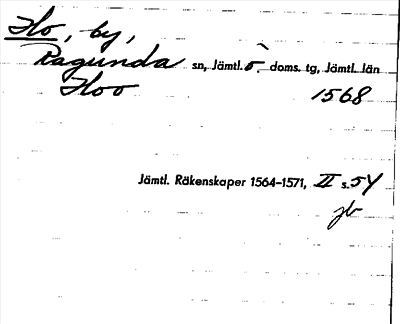 Ho, by,
Ragunda sn, Jämtl. ö. doms. tg, Jämtl. län
Hoo 1568
Jämtl. Räkenskaper 1564-1571, II s. 54
jb